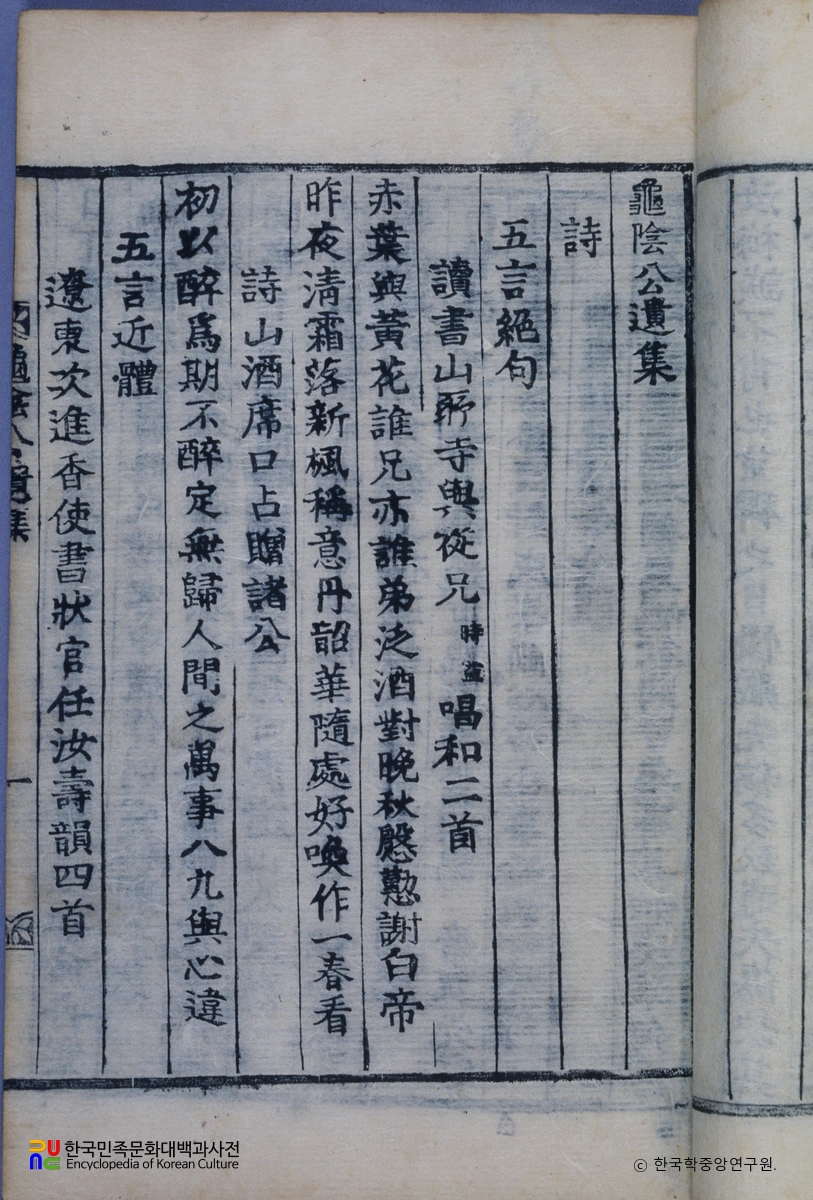 龜陰公遺集
詩
五言絕句
讀書山房寺與從兄時益唱和二首
赤葉與黃花誰兄亦誰弟泛酒對晚秋慇懃謝白帝
昨夜淸霜落新楓稱意丹韶華隨處好喚作一春看
詩山酒席口占贈諸公
初以醉爲期不醉定無歸人間之萬事八九與心違
五言近體
遼東次進香使書狀官任汝壽韻四首
龜陰公遺集
一
한국민족문화대백과사전
Encyclopedia of Korean Culture
ⓒ 한국학중앙연구원.